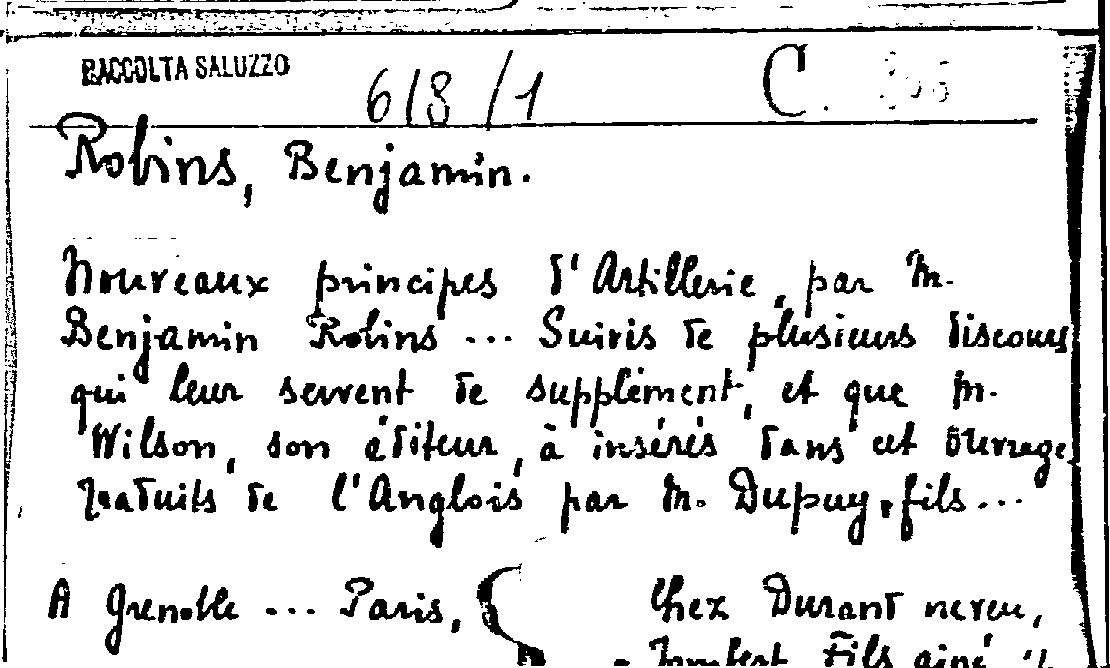 RACCOLTA SALUZZO 618/1 C.
Robins, Benjamin.
Nouveaux principes d'Artillerie, par M.
Benjamin Robins ... Suivis de plusieurs discours
qui leur servent de supplément, et que M.
Wilson, son éditeur, à insérés dans cet ouvrage,
traduits de l'Anglois par M. Dupuy, fils...
A Grenoble ... Paris, { Chez Durand neveu,
Jombert Fils ainé